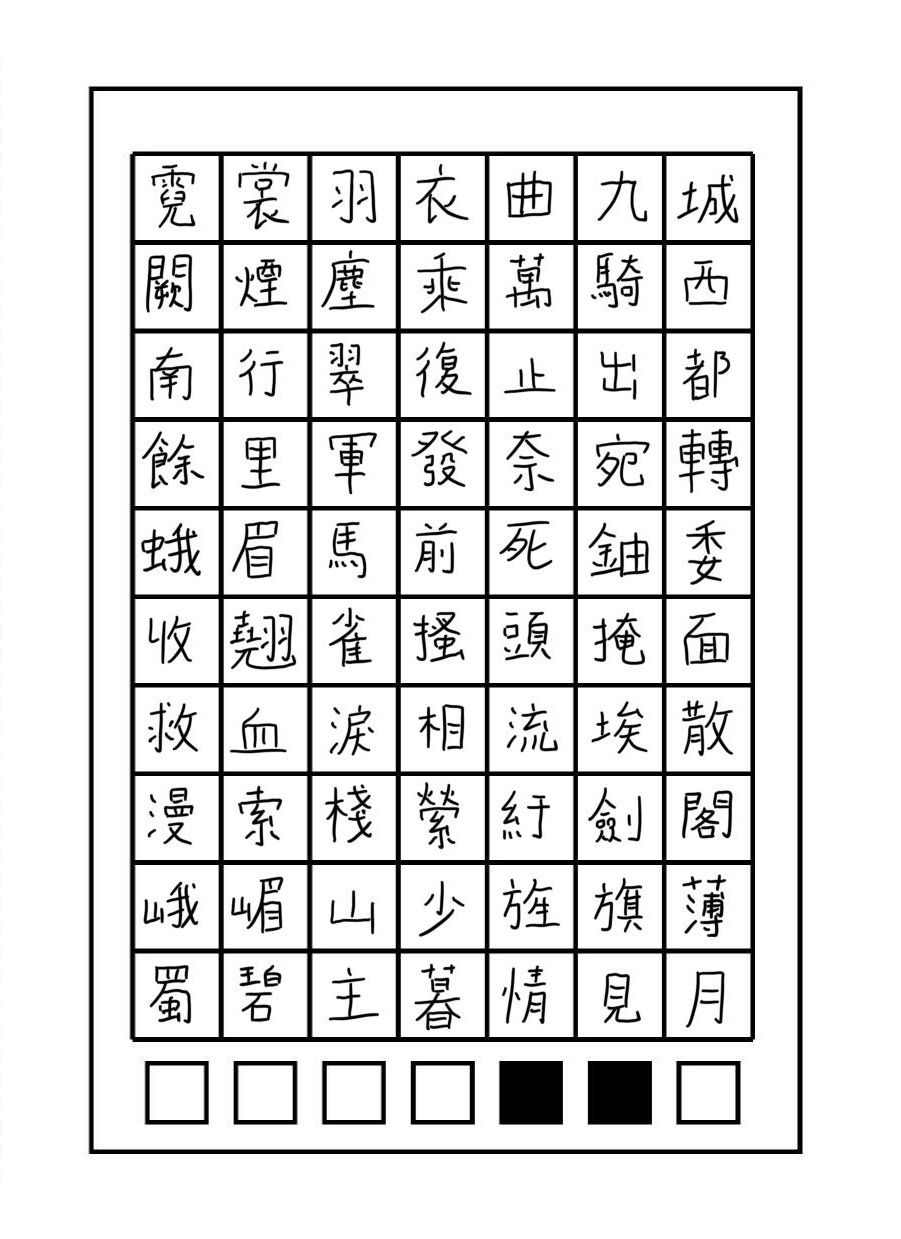 霓裳羽衣曲九城
闕煙塵乘萬騎西
南行翠復止出都
餘里軍發奈宛轉
蛾眉馬前死鈾委
收翹雀搔頭掩面
救血淚相流埃散
漫索棧縈紆劍閣
峨嵋山少旌旗薄
蜀碧主暮情見月